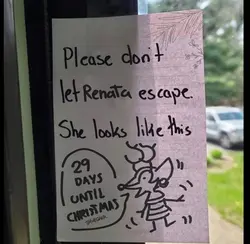 Please don't
let Renata escape.
She looks like this
29
DAYS
UNTIL
CHRISTMAS